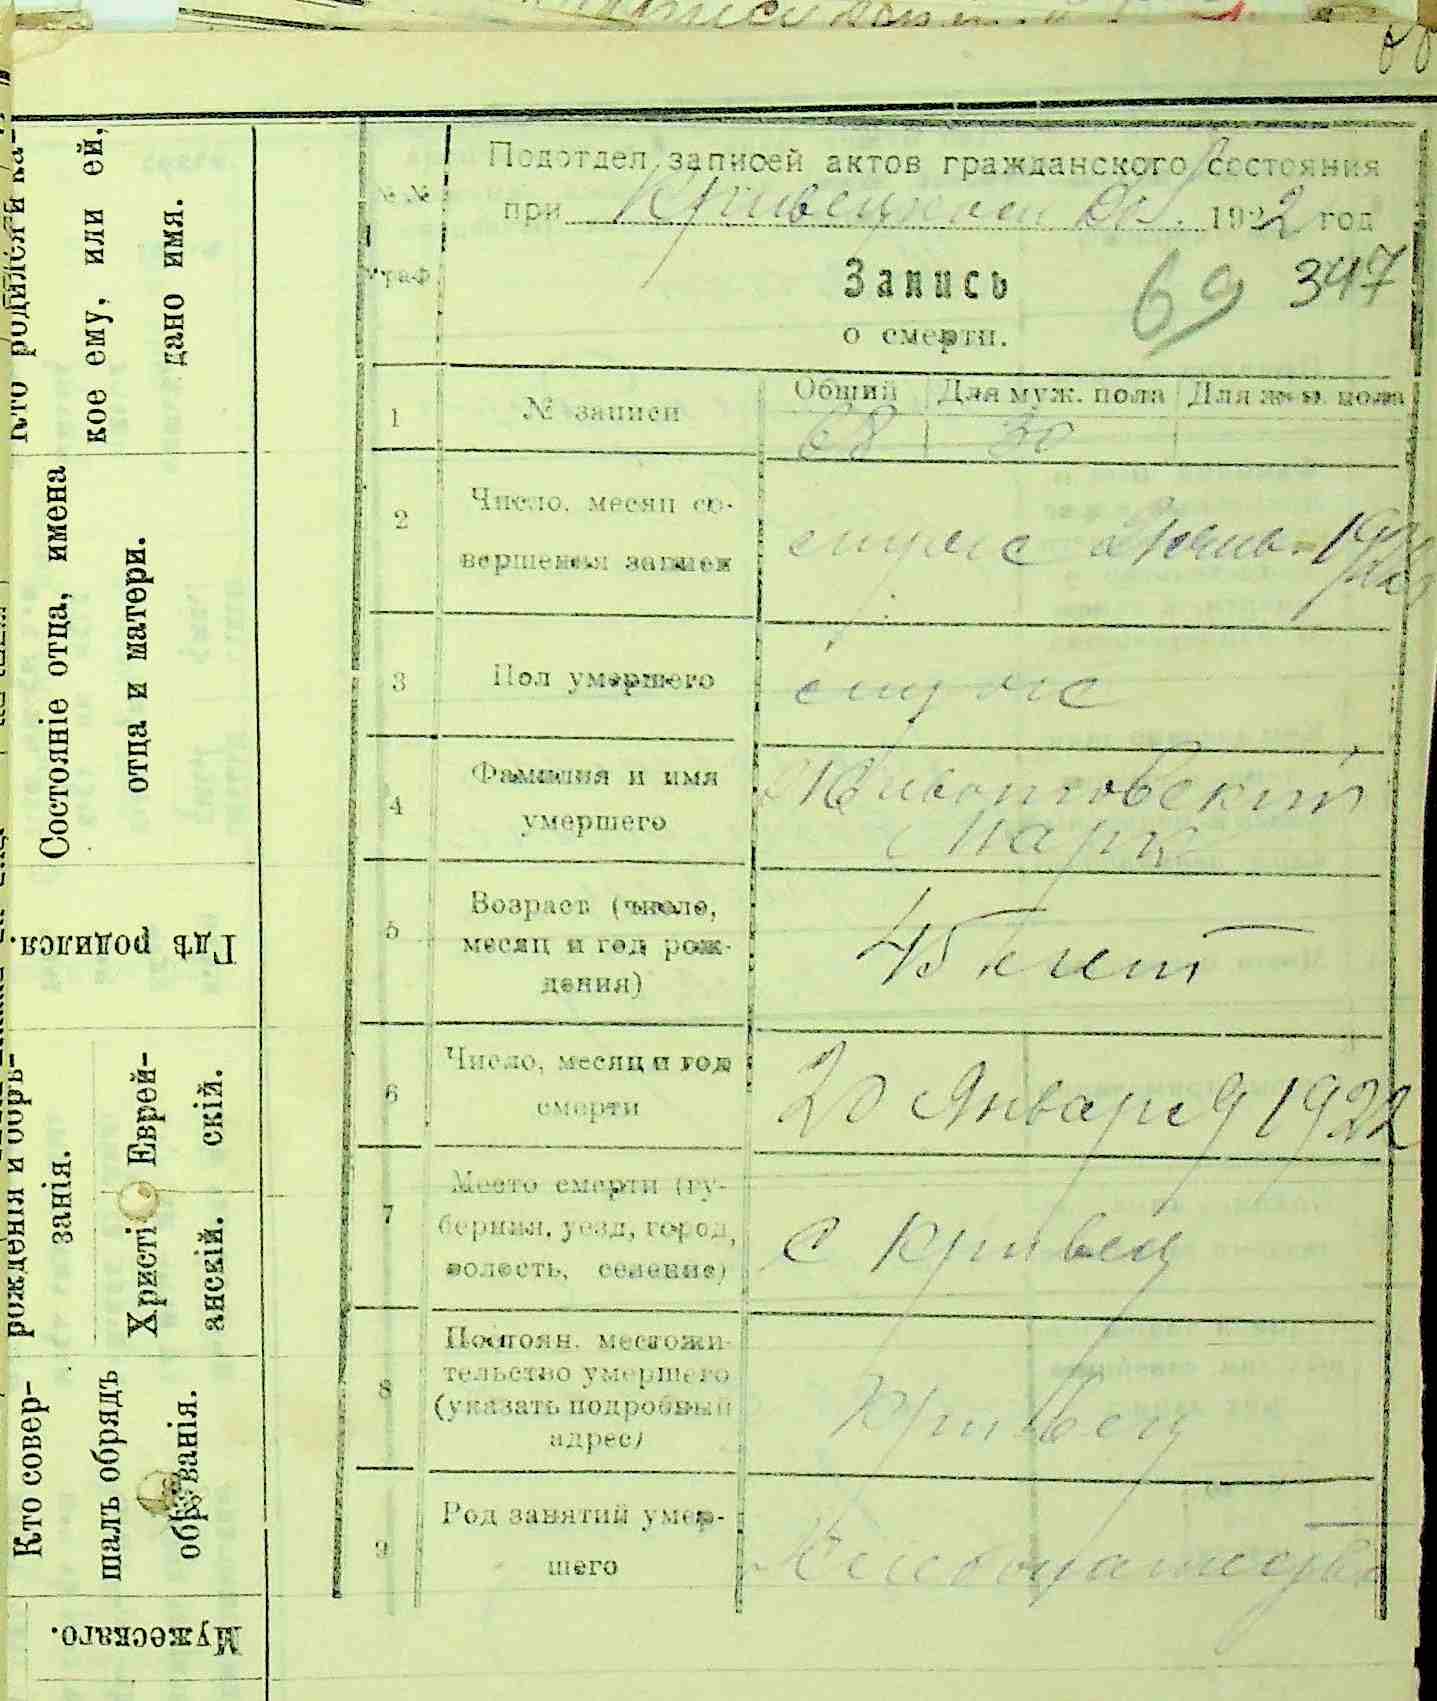 Кто родился и ка-
кое ему, или ей,
дано имя.
Состояніе отца, имена
отца и матери.
Гдѣ родился.
рожденія и обрѣ-
занія.
Еврей-
скій.
Христі-
анскій.
Кто совер-
шалъ обрядъ
обрѣзанія.
Мужескаго.
№№
граф
Подотдел записей актов гражданского состояния
при Кривецком 1922 год
Запись
о смерти.
69 347
1 № записи
Общий Для муж. пола Для жен. пола
68 30
2 Число, месяц со-
вершения записи
3 Пол умершего
муж
4 Фамилия и имя
умершего
Животовский
Марк
5 Возраст (число,
месяц и год рож-
дения)
45 лет
6 Число, месяц и год
смерти
20 Января 1922
7 Место смерти (гу-
берния, уезд, город,
волость, селение)
с Кривец
8 Постоян. местожи-
тельство умершего
(указать подробный
адрес)
Кривец
9 Род занятий умер-
шего
Хлебопашество